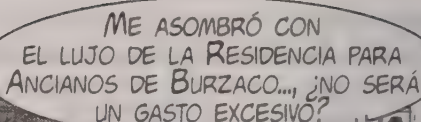 ME ASOMBRÓ CON
EL LUJO DE LA RESIDENCIA PARA
ANCIANOS DE BURZACO..., ¿NO SERÁ
UN GASTO EXCESIVO?